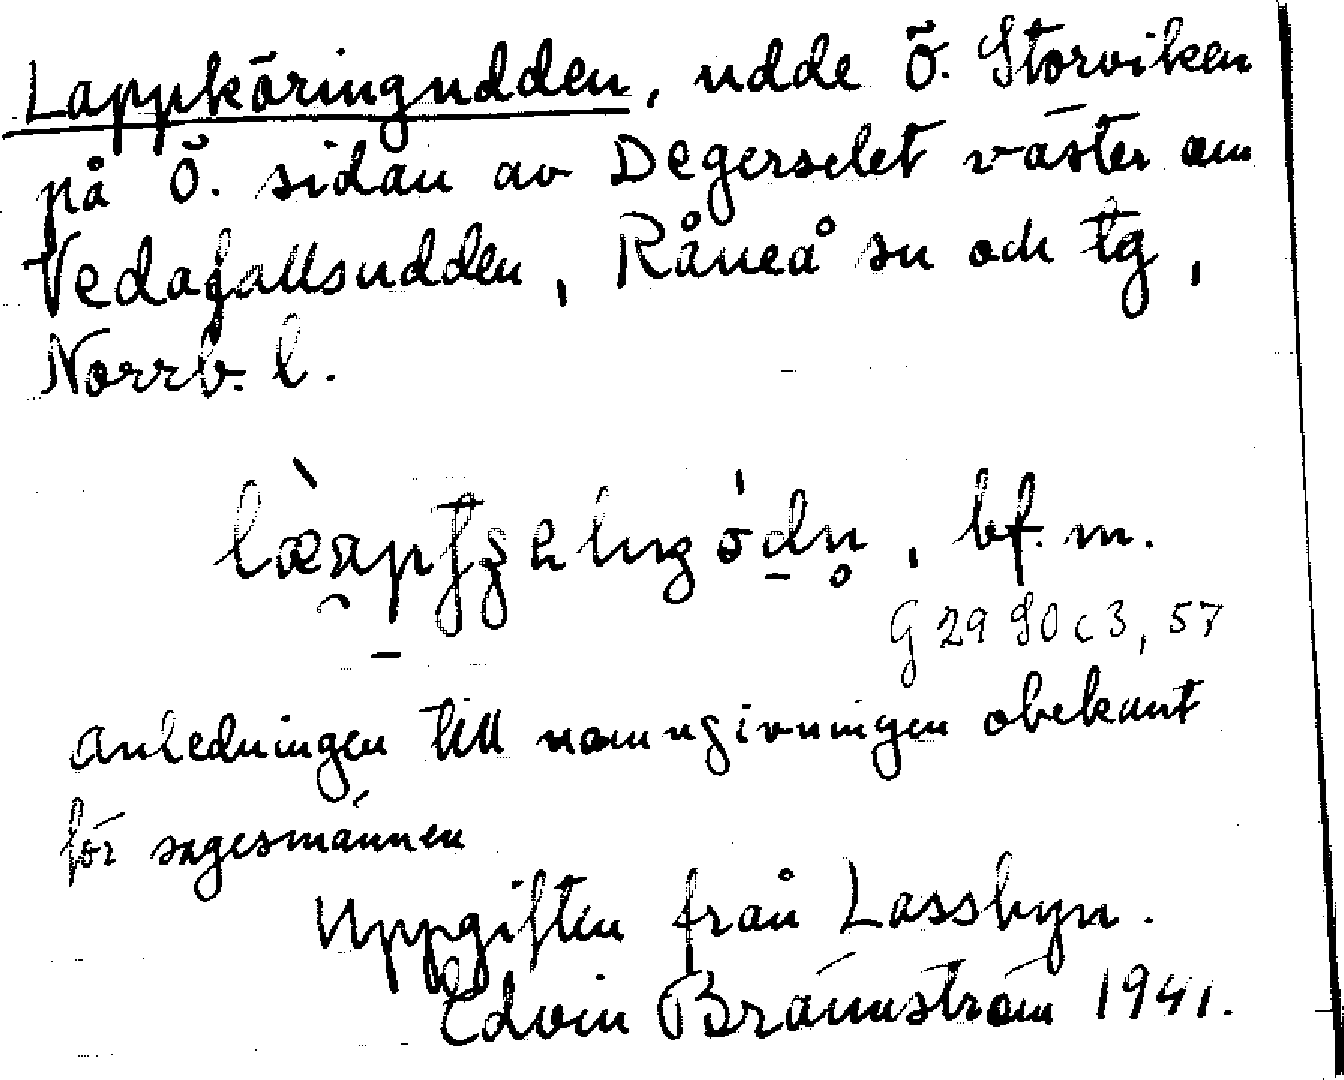 Lappköringudden, udde Ö. Storviken
på Ö. sidan av Degerselet väster om
Vedafallsudden, Råneå sn och tg,
Norrb. l.
bf. m.
G 29 80 c 3, 57
Anledningen till namngivningen obekant
för sagesmännen
Uppgiften från Lassbyn.
Edvin Brännström 1941.